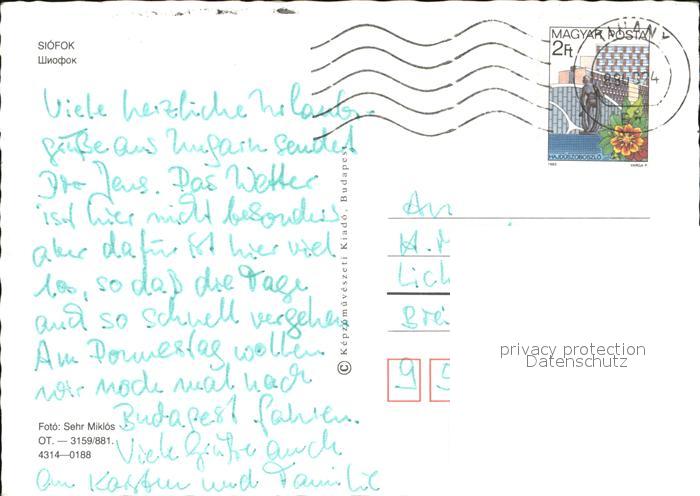 SIÓFOK
Шиофок
Viele herzliche Urlaubs-
grüße aus Ungarn sendet
Dir Jens. Das Wetter
ist hier nicht besonders
aber dafür ist hier viel
los, so daß die Tage
auch so schnell vergehen.
Am Donnerstag wollen
wir noch mal nach
Budapest fahren.
Viele Grüße auch
an Karsten und Familie
Fotó: Sehr Miklós
OT. — 3159/881.
4314—0188
© Képzőművészeti Kiadó, Budapest
MAGYAR POSTA
2Ft
HAJDÚSZOBOSZLÓ
1983 VARGA P.
An
H.
Lich
Brei
9 5
privacy protection
Datenschutz